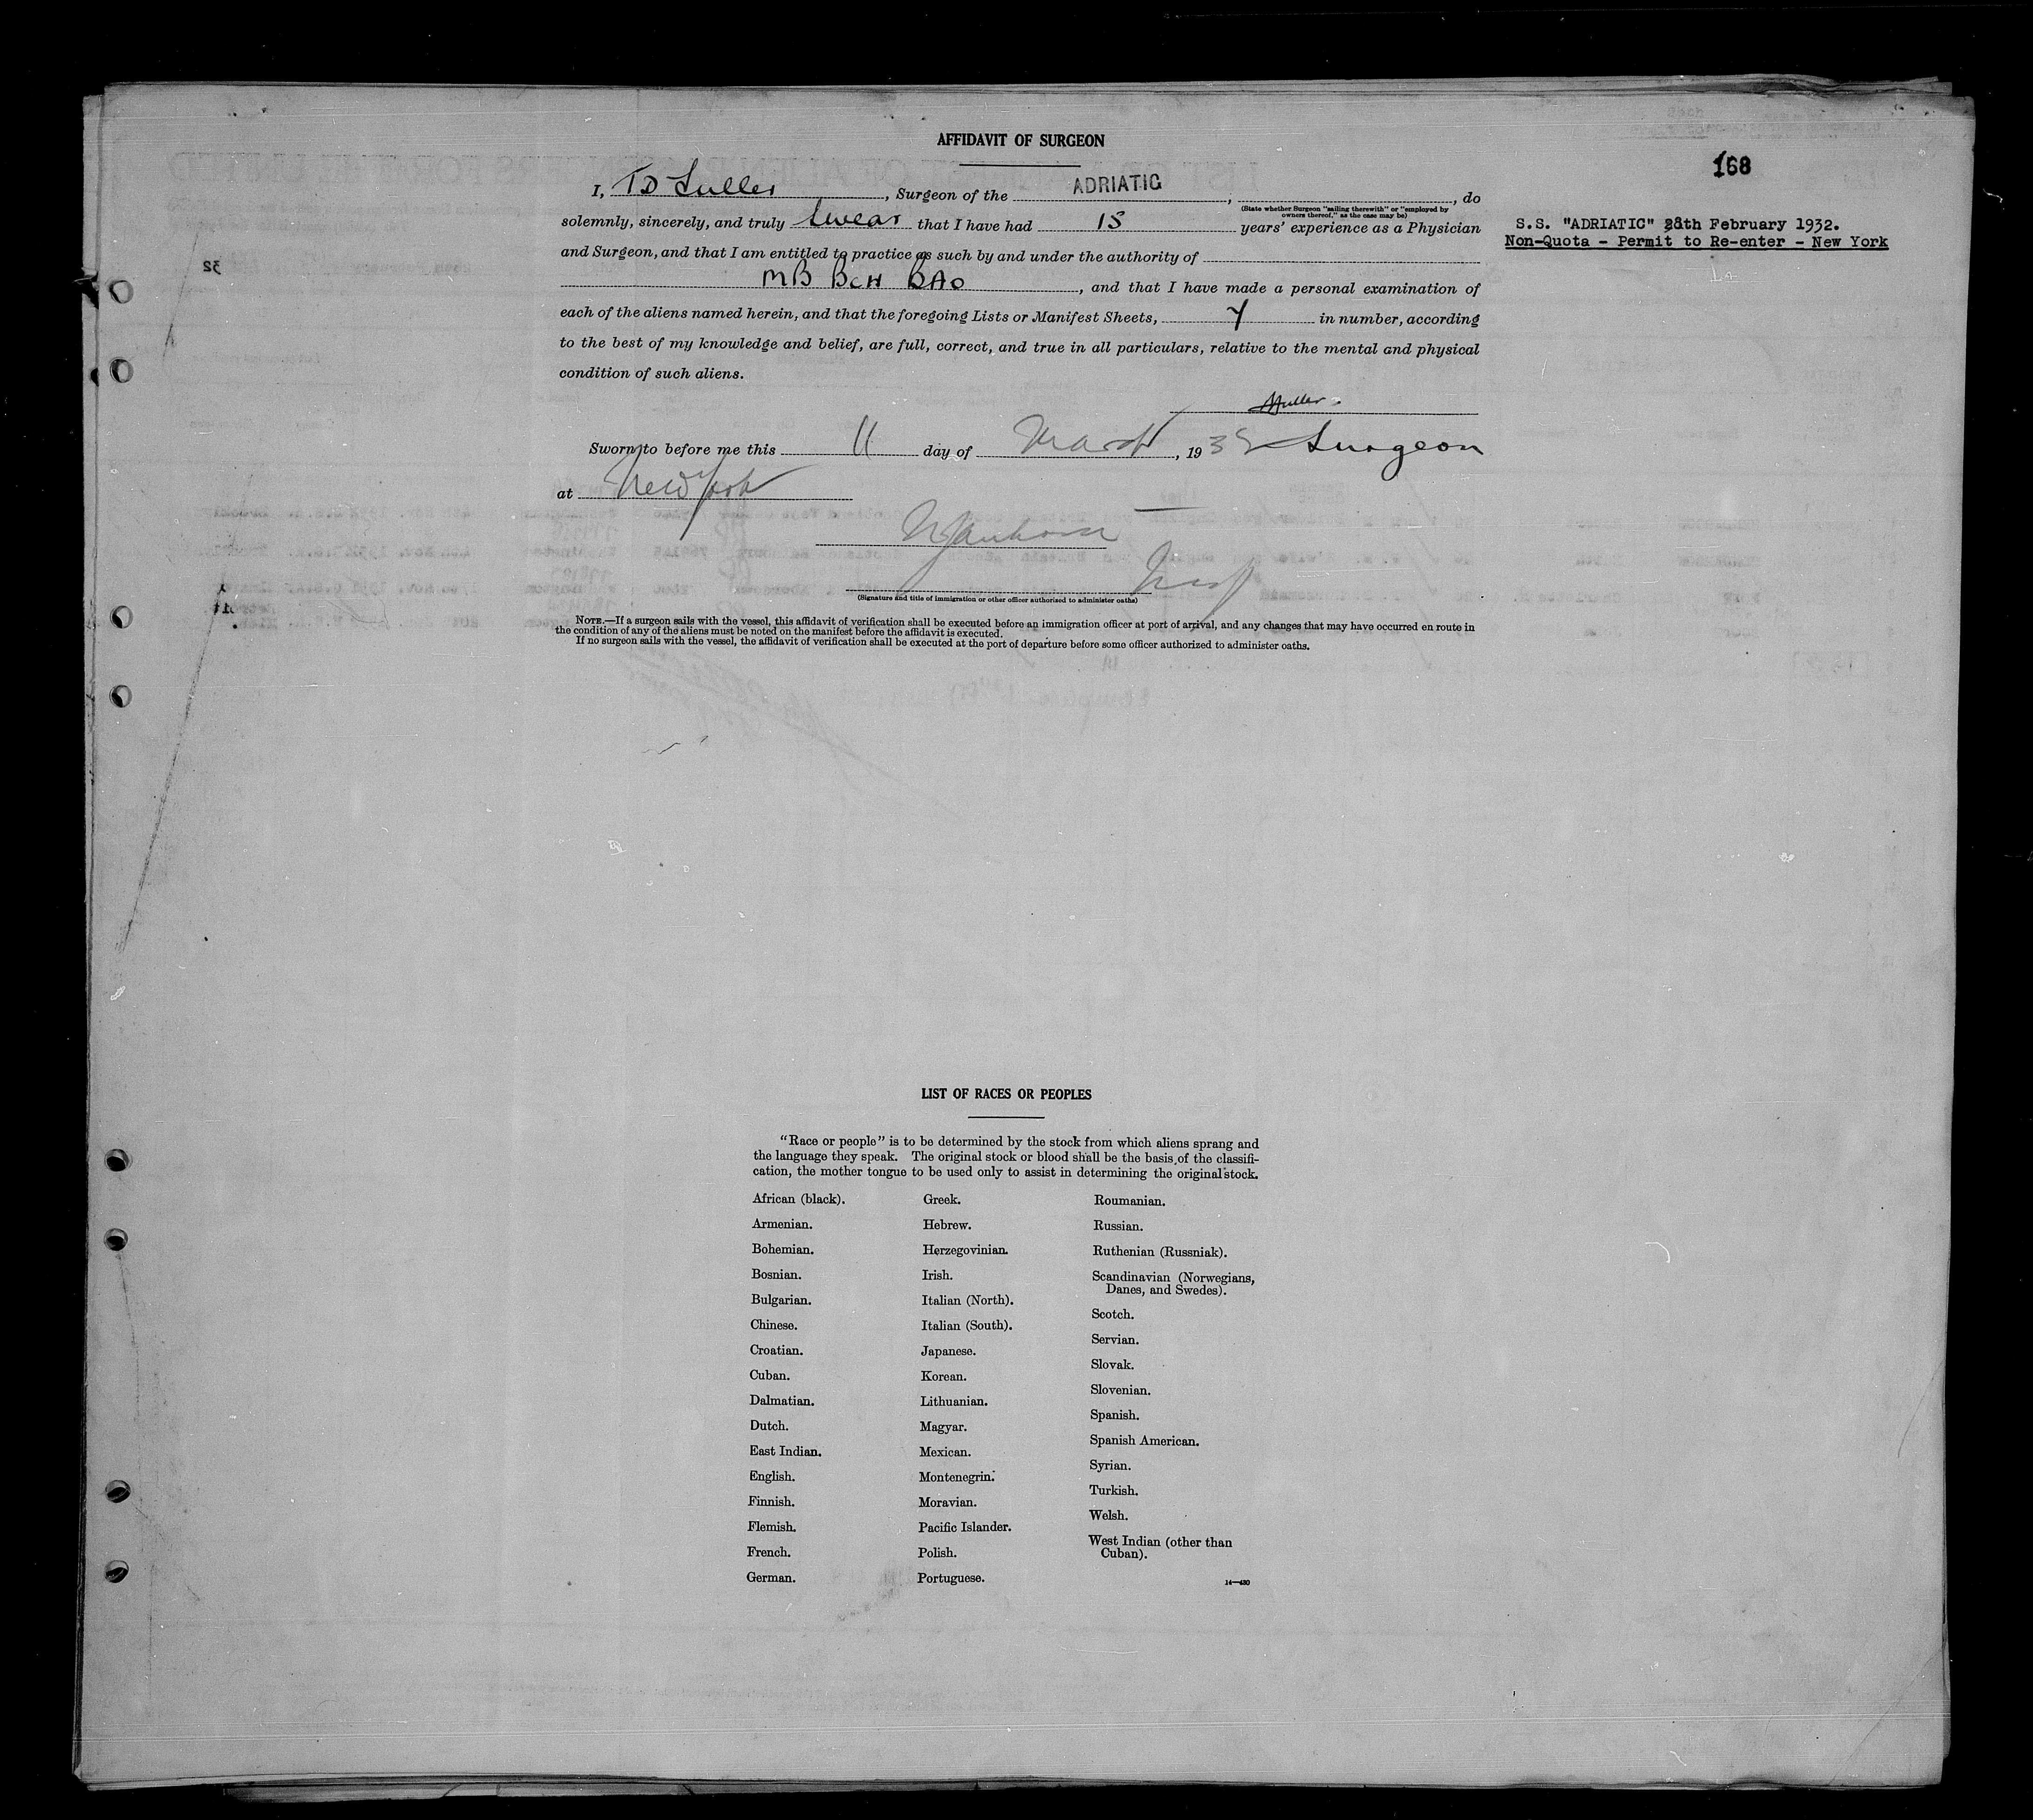 AFFIDAVIT OF SURGEON
168
I, TD , Surgeon of the ADRIATIC, , do
(State whether Surgeon "sailing therewith" or "employed by
owners thereof," as the case may be)
solemnly, sincerely, and truly swear that I have had 15 years' experience as a Physician
S.S. "ADRIATIC" 28th February 1932.
Non-Quota - Permit to Re-enter - New York
and Surgeon, and that I am entitled to practice as such by and under the authority of
MB BCH BAO , and that I have made a personal examination of
each of the aliens named herein, and that the foregoing Lists or Manifest Sheets, 7 in number, according
to the best of my knowledge and belief, are full, correct, and true in all particulars, relative to the mental and physical
condition of such aliens.
Sworn to before me this 11 day of March, 1932 Surgeon
at New York
Insp
(Signature and title of immigration or other officer authorized to administer oaths)
NOTE.—If a surgeon sails with the vessel, this affidavit of verification shall be executed before an immigration officer at port of arrival, and any changes that may have occurred en route in
the condition of any of the aliens must be noted on the manifest before the affidavit is executed.
If no surgeon sails with the vessel, the affidavit of verification shall be executed at the port of departure before some officer authorized to administer oaths.
LIST OF RACES OR PEOPLES
"Race or people" is to be determined by the stock from which aliens sprang and
the language they speak. The original stock or blood shall be the basis of the classifi-
cation, the mother tongue to be used only to assist in determining the original stock.
African (black).
Armenian.
Bohemian.
Bosnian.
Bulgarian.
Chinese.
Croatian.
Cuban.
Dalmatian.
Dutch.
East Indian.
English.
Finnish.
Flemish.
French.
German.
Greek.
Hebrew.
Herzegovinian.
Irish.
Italian (North).
Italian (South).
Japanese.
Korean.
Lithuanian.
Magyar.
Mexican.
Montenegrin.
Moravian.
Pacific Islander.
Polish.
Portuguese.
Roumanian.
Russian.
Ruthenian (Russniak).
Scandinavian (Norwegians,
Danes, and Swedes).
Scotch.
Servian.
Slovak.
Slovenian.
Spanish.
Spanish American.
Syrian.
Turkish.
Welsh.
West Indian (other than
Cuban).
14—430